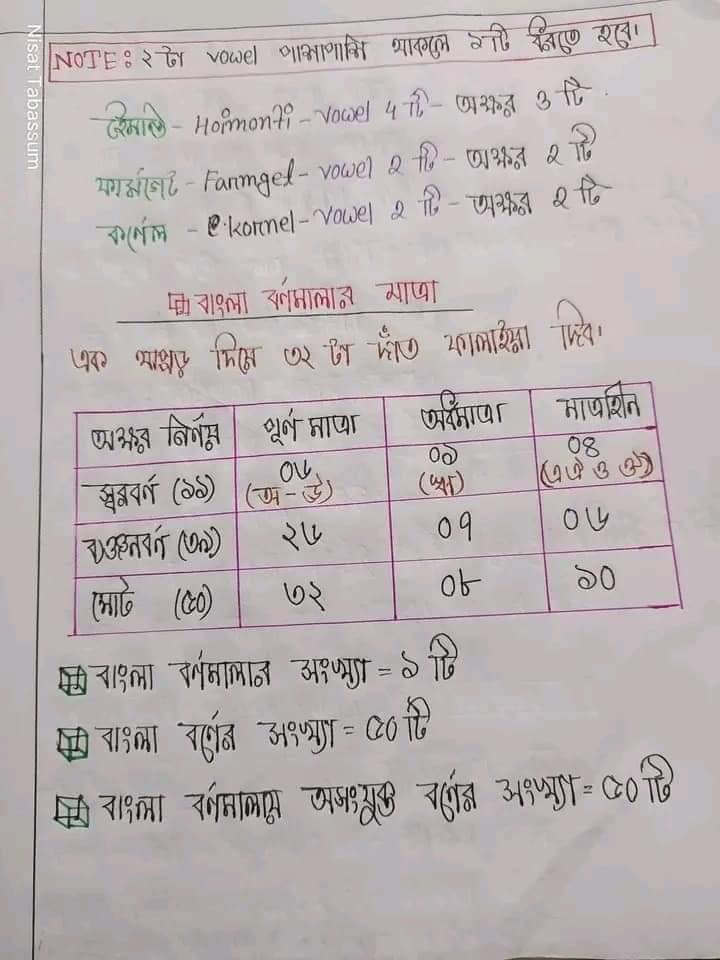 Nisat Tabassum
NOTE: ২ টা vowel পাশাপাশি থাকলে ১টি ধরতে হবে।
হৈমন্তি - Hoimonti - vowel 4 টি - অক্ষর ৩ টি
ফার্মগেট - Farmget - vowel ২ টি - অক্ষর ২ টি
কর্ণেল - kornel - vowel ২ টি - অক্ষর ২ টি
বাংলা বর্ণমালার মাত্রা
এক থাপ্পড় দিয়ে ৩২ টা দাঁত ফালাইয়া দিব।
অক্ষর নির্ণয় পূর্ণ মাত্রা অর্ধমাত্রা মাত্রাহীন
স্বরবর্ণ (১১) ০৬ (অ - ঊ) ০১ (ঋ) ০৪ (এ ঐ ও ঔ)
ব্যঞ্জনবর্ণ (৩৯) ২৬ ০৭ ০৬
মোট (৫০) ৩২ ০৮ ১০
বাংলা বর্ণমালার সংখ্যা = ১ টি
বাংলা বর্ণের সংখ্যা = ৫০ টি
বাংলা বর্ণমালায় অসংযুক্ত বর্ণের সংখ্যা = ৫০ টি